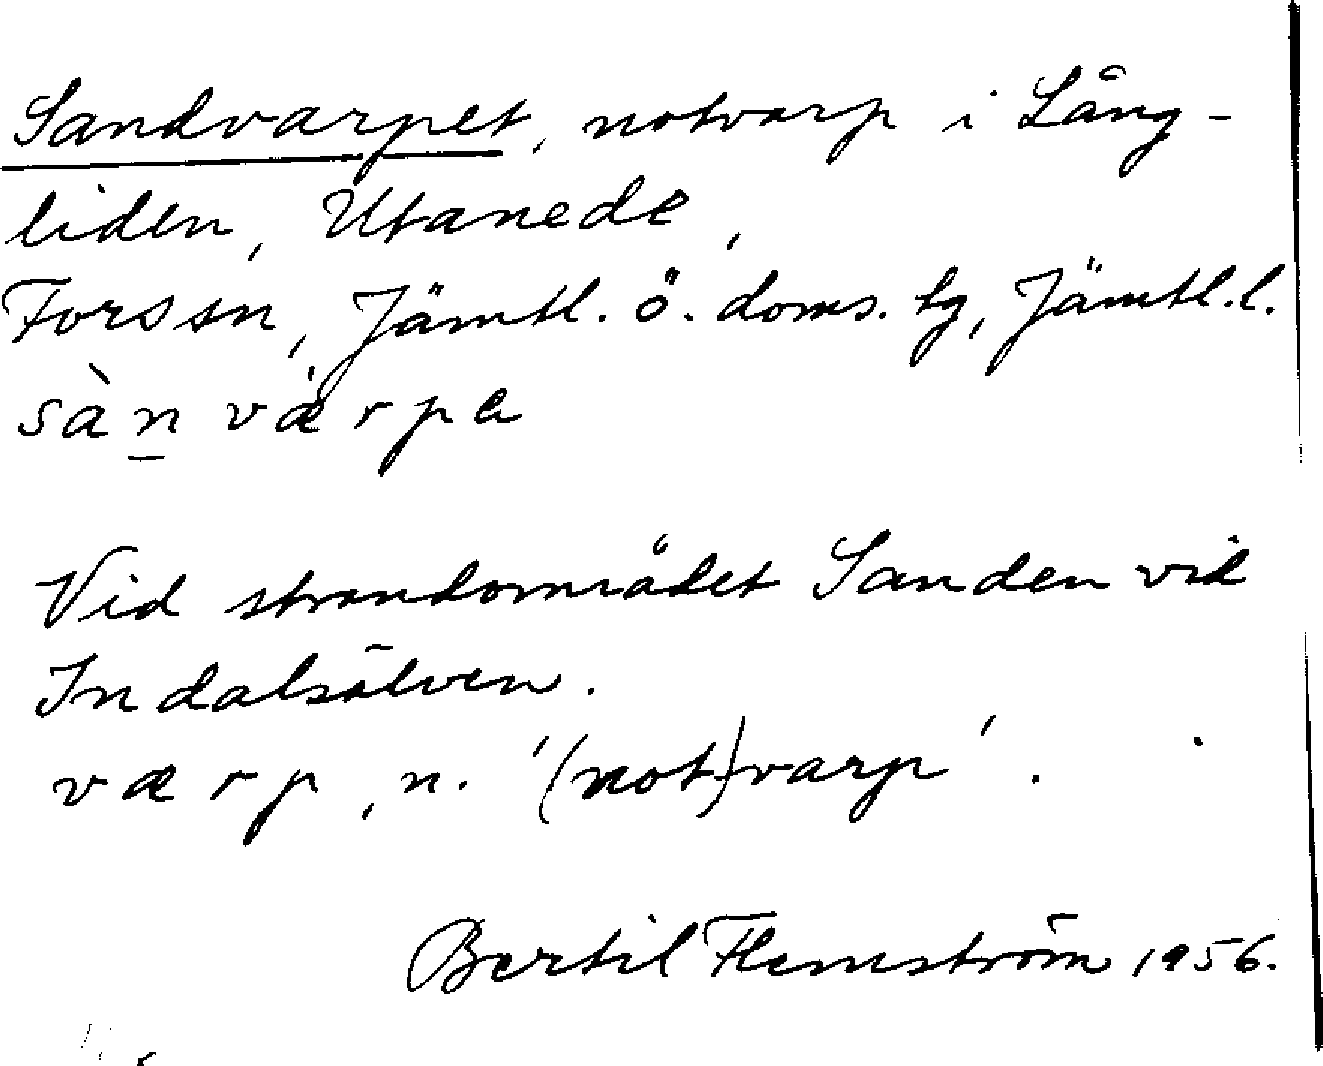 Sandvarpet, notvarp i Lång-
liden, Utanede,
Fors sn, Jämtl. ö. doms. tg, Jämtl. l.
sàn̲ væ̀rpa
Vid strandområdet Sanden vid
Indalsälven.
værp, n. '(not)varp'.
Bertil Flemström 1956.